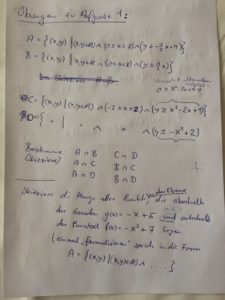 Übungen zu Aufgabe 1:
A = {(x,y) | (x,y∈R) ∧ (0≤x≤2) ∧ (y≤-x+4)}
B = {(x,y) | (x,y∈R) ∧ (0≤x) ∧ (y≥x)}
C= {(x,y) | (x,y∈R) ∧ (-2≤x≤2) ∧ (y≥x²-2x+1)}
D= { " | " ∧ " ∧ (y≤-x²+2)
Bestimme: A∩B C∩D
(Skizziere) A∩C B∩C
A∩D B∩D
Skizziere die Menge aller Punkte der Ebene die oberhalb
der Geraden g(x)= -x+6 und unterhalb
der Parabel f(x)= -x²+7 liegen
(einmal „formalisieren" sprich in die Form
A = {(x,y) | (x,y∈R) ∧ .....}